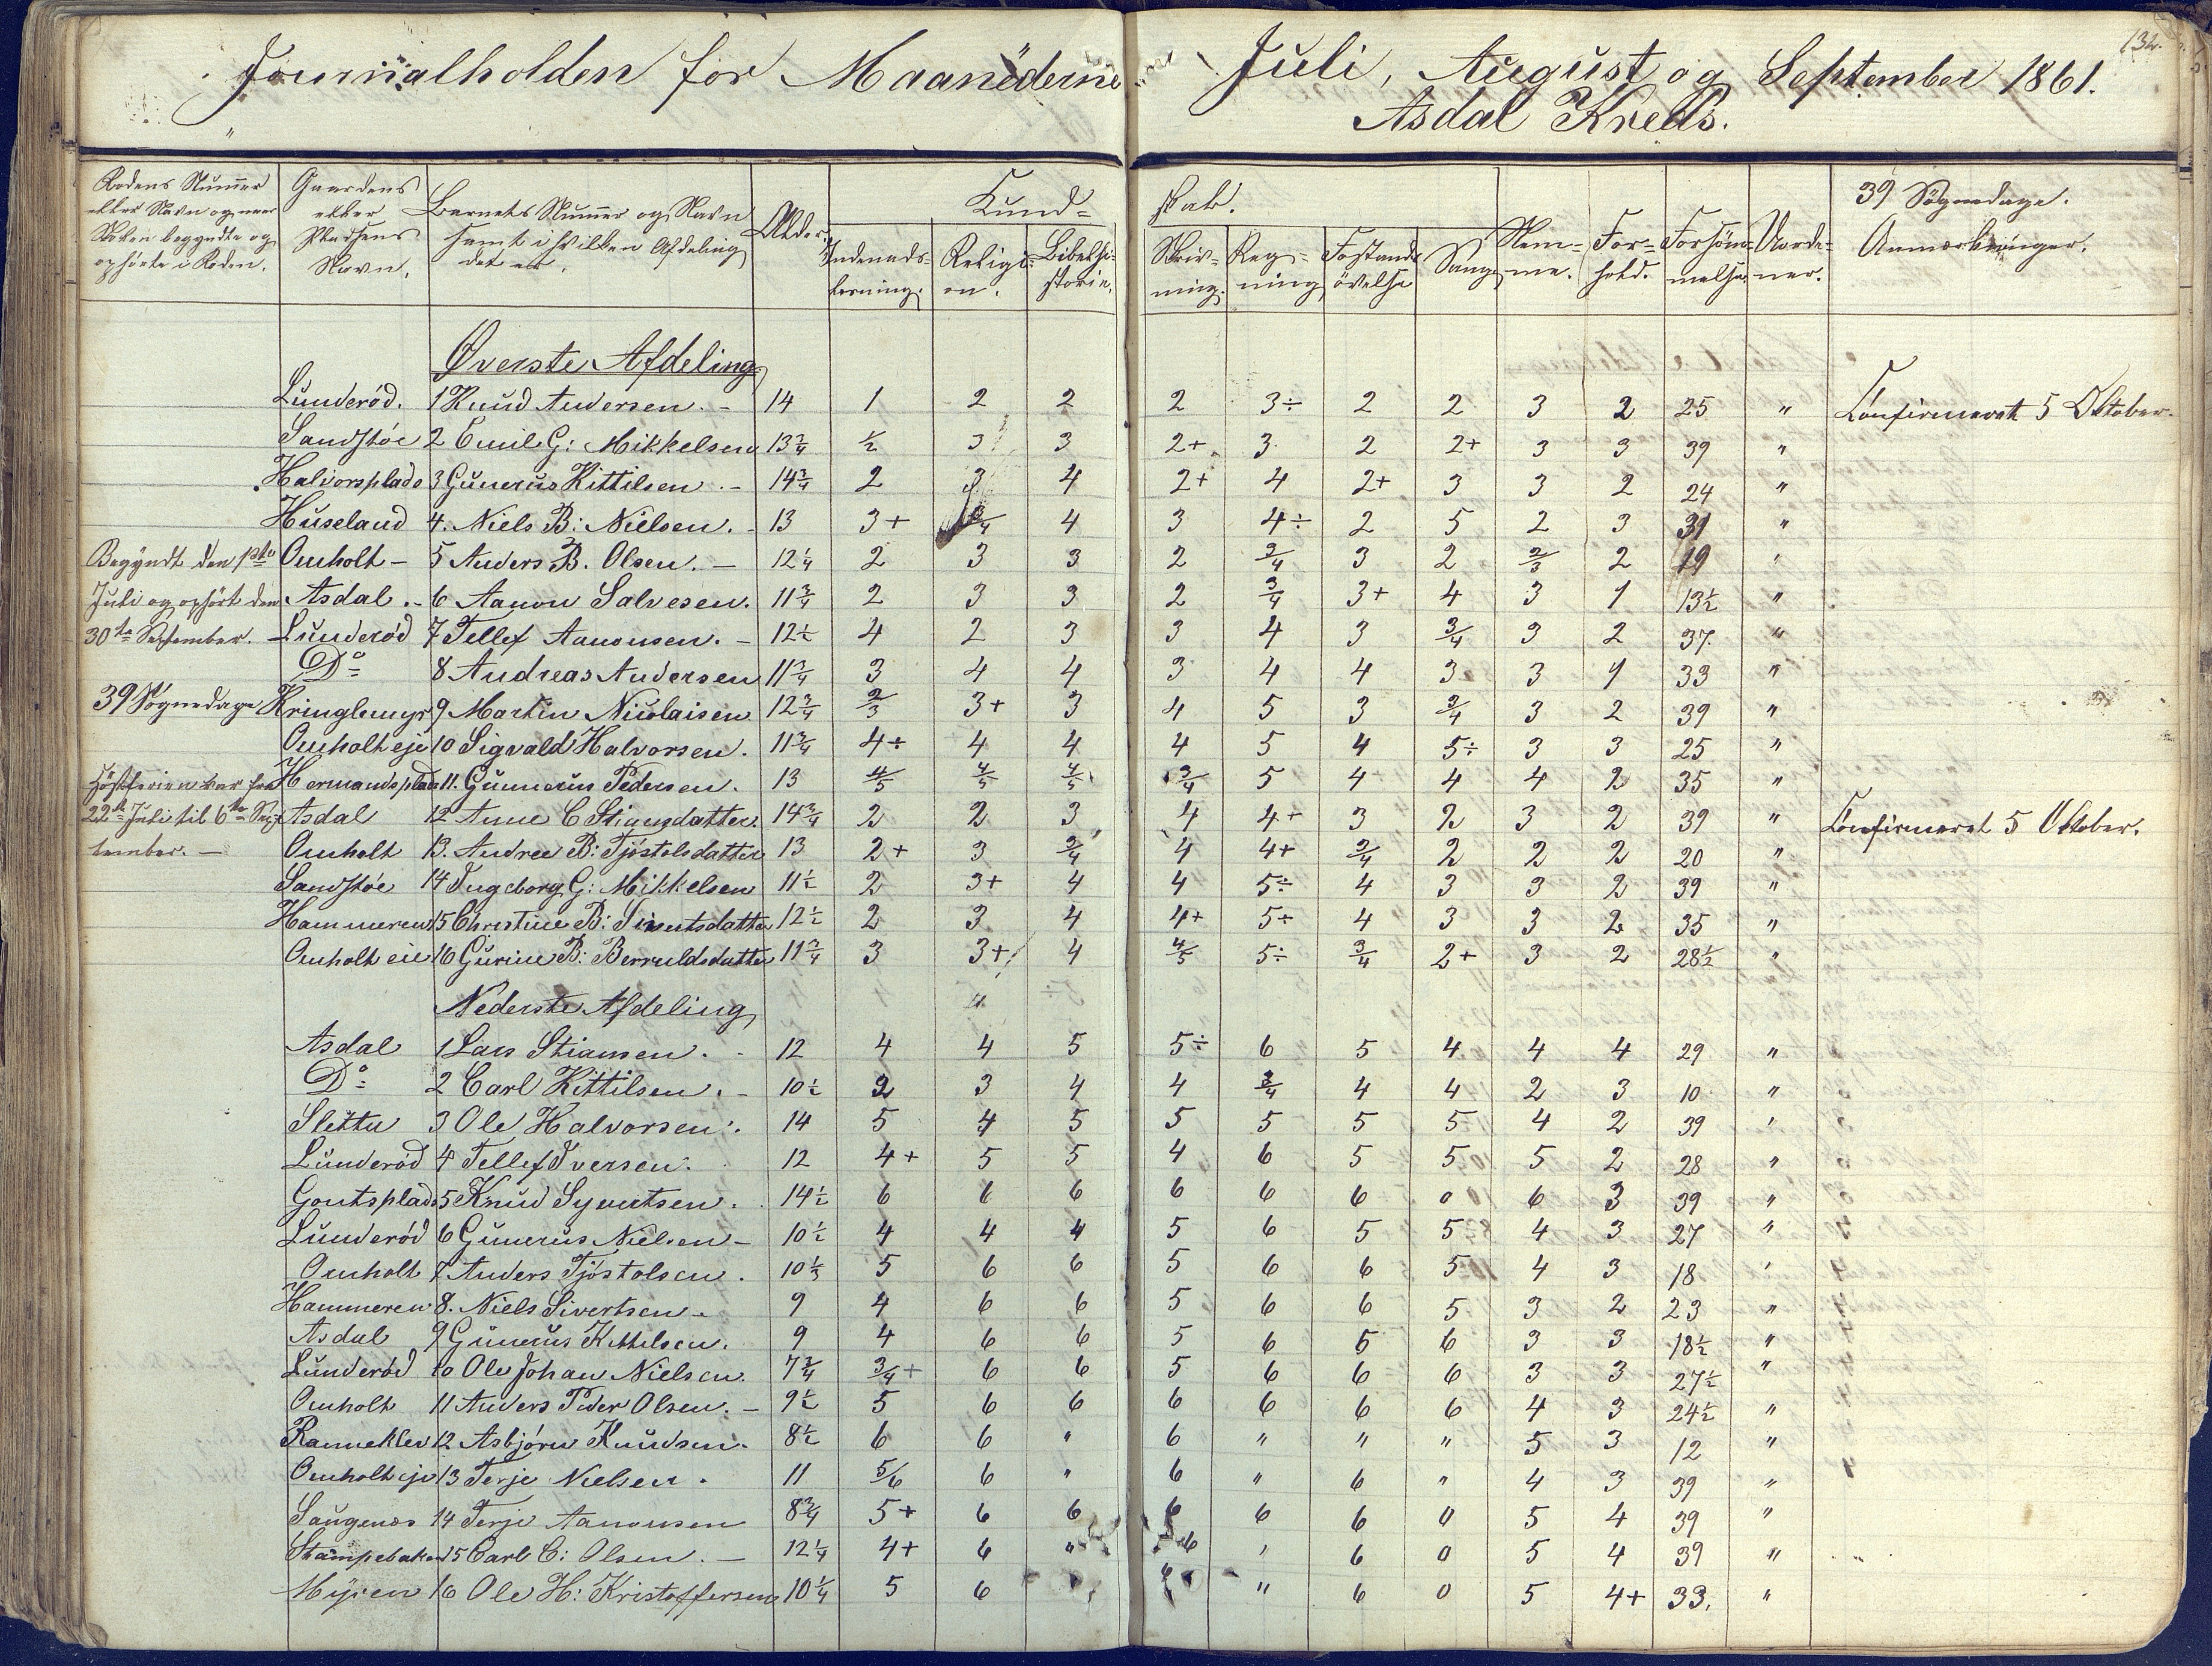 134.
Journalholden for Maanederne Juli, August og September 1861.
Asdal Kreds.
Rodens Nummer eller Navn og naar Skolen begyndte og ophørte i Roden.
Gaardens eller Pladsens Navn.
Barnets Nummer og Navn samt i hvilken Afdeling det er.
Alder.
Kund= skab.
Indenads= læsning.
Religi= on.
Bibelhi= storie.
Skriv= ning.
Reg= ning
Forstands øvelse
Sang
Nem= me.
For= hold.
Forsöm= melse.
Vurde= ner.
39 Sögnedage.
Anmærkninger.
Øverste Afdeling
Lunderöd. 1 Knud Andersen. - 14 1 2 2 2 3÷ 2 2 3 2 25 " Confirmeret 5 Oktober.
Sandstöe 2 Emil G: Mikkelsen 13 3/4 1/2 3 3 2+ 3 2 2+ 3 3 39 "
Halvorsplads 3 Gunerius Kittilsen. - 14 3/4 2 3 4 2+ 4 2+ 3 3 2 24 "
Huseland 4. Niels B: Nielsen. - 13 3+ 3/4 4 3 4÷ 2 5 2 3 39 "
Begyndt den 1ste Omholt - 5 Anders B. Olsen. - 12 1/4 2 3 3 2 3/4 3 2 2/3 2 19 "
Juli og ophört den Asdal. - 6 Aanon Salvesen. 11 3/4 2 3 3 2 3/4 3+ 4 3 1 13 1/2 "
30te September. Lunderöd 7 Tellef Aanonsen. - 12 1/2 4 2 3 3 4 3 3/4 3 2 37. "
Do 8 Andreas Andersen 11 3/4 3 4 4 3 4 4 3 3 1 33 "
39 Sögnedage Kringlemyr 9 Martin Nicolaisen 12 3/4 2/3 3+ 3 4 5 3 3/4 3 2 39 "
Omholt eje 10 Sigvald Halvorsen. 11 3/4 4÷ 4 4 4 5 4 5÷ 3 3 25 "
Höstferien var fra Hermandsplads 11. Gunnerius Pedersen. 13 4/5 4/5 4/5 3/4 5 4 4 4 2 35 "
22de Juli til 6te Sep= Asdal 12 Anne C Stiansdatter. 14 3/4 2 2 3 4 4+ 3 2 3 2 39 " Confirmeret 5 Oktober.
tember. - Omholt 13. Andree B: Tjöstolsdatter 13 2+ 3 3/4 4 4+ 3/4 2 2 2 20 "
Sandstöe 14 Ingeborg G: Mikkelsen 11 1/2 2 3+ 4 4 5÷ 4 3 3 2 39 "
Hammeren 15 Christine B: Sivertsdatter 12 1/2 2 3 4 4+ 5÷ 4 3 3 2 35 "
Omholt eie 16 Gurine B: Berruldsdatter 11 3/4 3 3+ 4 4/5 5÷ 3/4 2+ 3 2 28 1/2 "
Nederste Afdeling
Asdal 1 Lars Stiansen. - 12 4 4 5 5÷ 6 5 4 4 4 29 "
Do 2 Carl Kittilsen. - 10 1/2 2 3 4 4 3/4 4 4 2 3 10 "
Sletta 3 Ole Halvorsen. 14 5 4 5 5 5 5 5 4 2 39 "
Lunderöd 4 Tellef Iversen. 12 4+ 5 5 4 6 5 5 5 2 28 "
Goutsplads 5 Knud Syvertsen. 14 1/2 6 6 6 6 6 6 0 6 3 39 "
Lunderöd 6 Gunerius Nielsen - 10 1/2 4 4 4 5 6 5 5 4 3 27 "
Omholt 7 Anders Tjöstolsen. 10 1/3 5 6 6 5 6 6 5 4 3 18 "
Hammeren 8. Niels Sivertsen. 9 4 6 6 5 6 6 5 3 2 23 "
Asdal 9 Gunerius Kittilsen. 9 4 6 6 5 6 5 6 3 3 18 1/2 "
Lunderöd 10 Ole Johan Nielsen. 7 3/4 3/4+ 6 6 5 6 6 6 3 3 27 1/2 "
Omholt 11 Anders Peder Olsen. - 9 1/2 5 6 6 6 6 6 6 4 3 24 1/2 "
Ranneklev 12 Asbjörn Knudsen. 8 1/2 6 6 " 6 " " " 5 3 12 "
Omholt eje 13 Terje Nielsen. 11 5/6 6 " 6 " 6 " 4 3 39 "
Saugenes 14 Terje Aanonsen 8 3/4 5+ 6 6 6 6 6 0 5 4 39 "
Stampebakken 15 Carl C: Olsen. - 12 1/4 4+ 6 " 6 " 6 0 5 4 39 "
Myren 16 Ole H: Kristoffersen 10 1/4 5 6 " 6 0 5 4+ 33. "